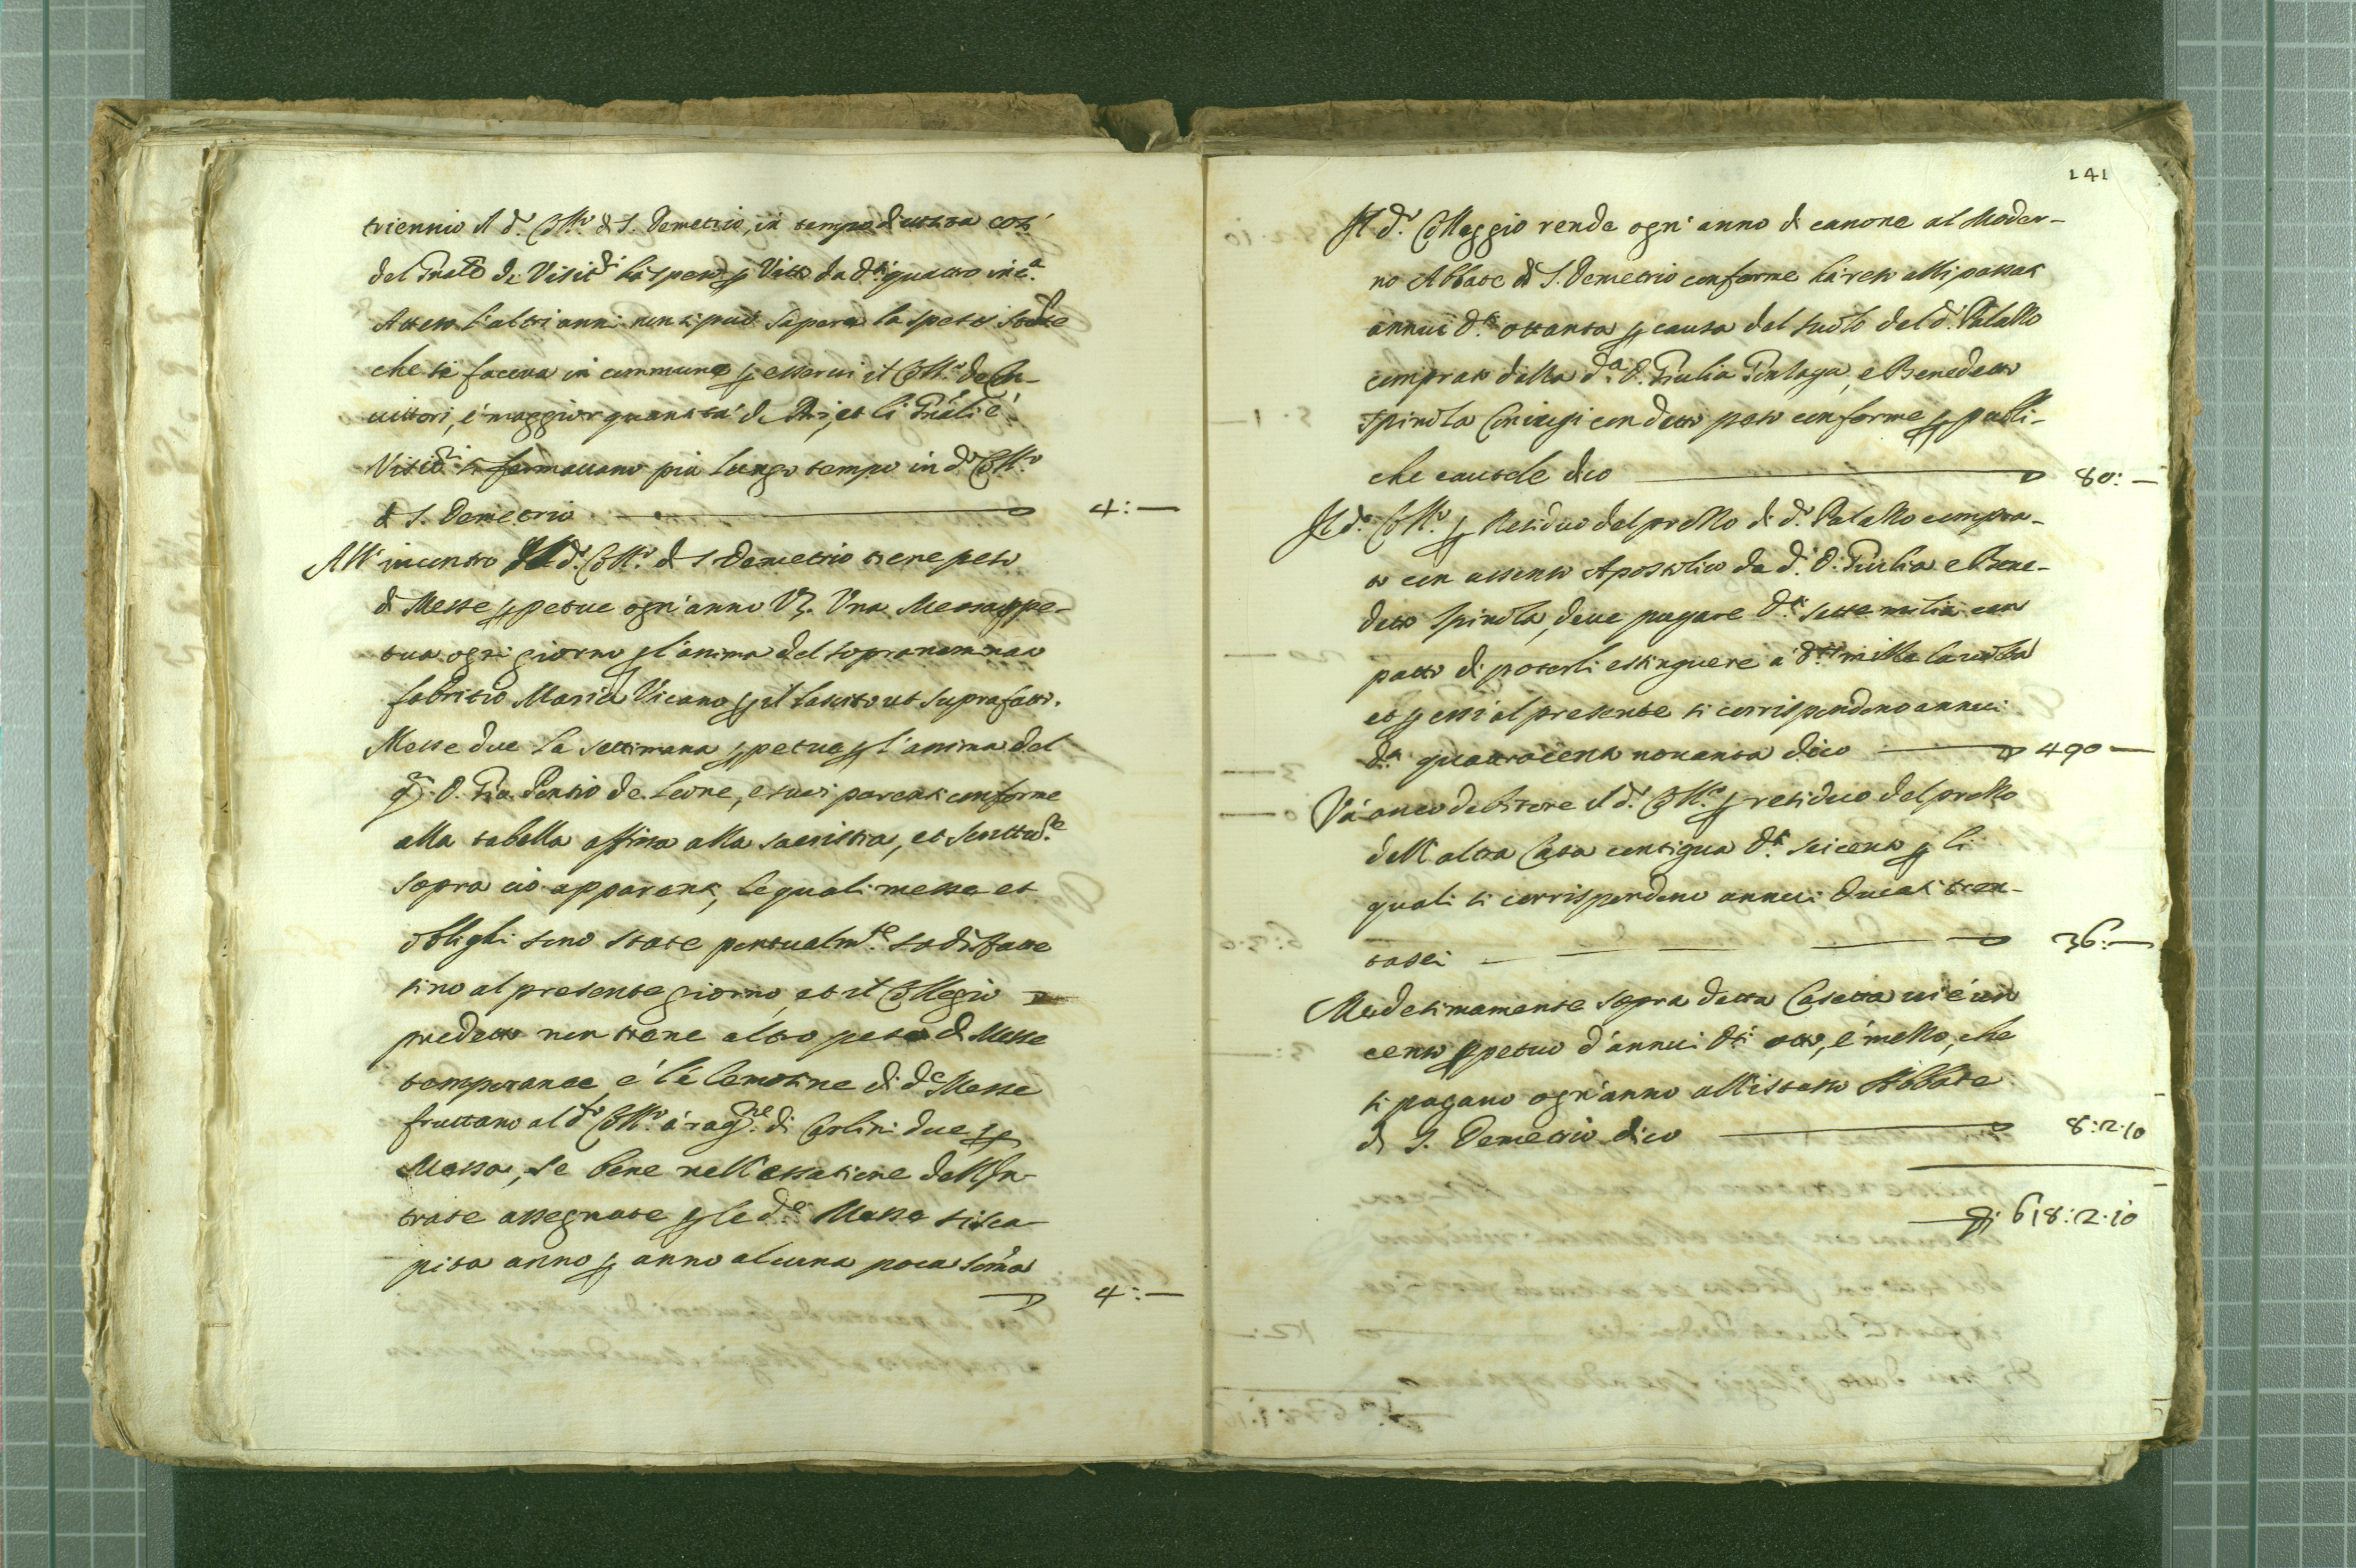 triennio il d.º Coll.º di S. Demetrio, in tempo di uisita così
del Gnãle de Visit.ri ha speso p Vitto da d.ti quattro in c.a
Atteso l'altri anni non si può sapere la spesa
che si faceva in commune p esserui il Coll.º de Con-
uittori, è maggior quantità di Pri, et li Gnãli è
Visit.ri si fermauano più lungo tempo in d.º Coll.º
di S. Demetrio 4:—
All'incontro il d.º Coll.º di S. Demetrio tiene peso
di Messe ppetue ogn'anno Vz. Una Messa ppe-
tua ogni giorno p l'anima del sopranominato
fabritio Maria Vicano p il lascito ut supra fatto.
Messe due la settimana ppetue p l'anima del
qm. D. Gio. Pontio de Leone, e suoi parenti conforme
alla tabella affissa alla sacristia, et scritture
sopra ciò apparenti, le quali messe et
oblighi sono state pontualm.te sodisfatte
sino al presente giorno, et il Collegio
predetto non tiene altro peso di Messe
temporanee, e le lemosine di d.e Messe
fruttano al d.to Coll.º à rag.ne di Carlini due p
Messa, se bene nell'essatione dell'In-
trate assegnate p le d.e Messe si sca-
pita anno p anno alcuna poca som̃a
4:—
141
Il d.º Colleggio rende ogn'anno di canone al Moder-
no Abbate di S. Demetrio conforme hà reso alli passati
annui d.ti ottanta p causa del suolo del d.º Palazzo
comprato dalla d.a D. Giulia e Benedetto
Spinola Coniugi con detto peso conforme p publi-
che cautele dico 80:—
Il d.º Coll.º p residuo del prezzo di d.º Palazzo compra-
to con assenso Apostolico da d.i D. Giulia e Bene-
detto Spinola, deue pagare d.ti sette milia con
patto di poterli estinguere à d.ti mille la uolta
et p essi al presente si corrispondono annui
d.ti quattrocento nouanta dico 490—
Và anco debitore il d.º Coll.º p residuo del prezzo
dell'altra Casa contigua d.ti seicento p li
quali si corrispondono annui Ducati tren-
tasei 36:—
Medesimamente sopra detta Casetta ui è un
censo ppetuo d'annui d.ti otto, è mezzo, che
si pagano ogn'anno all'istesso Abbate
di S. Demetrio dico 8:2:10
618:2:10